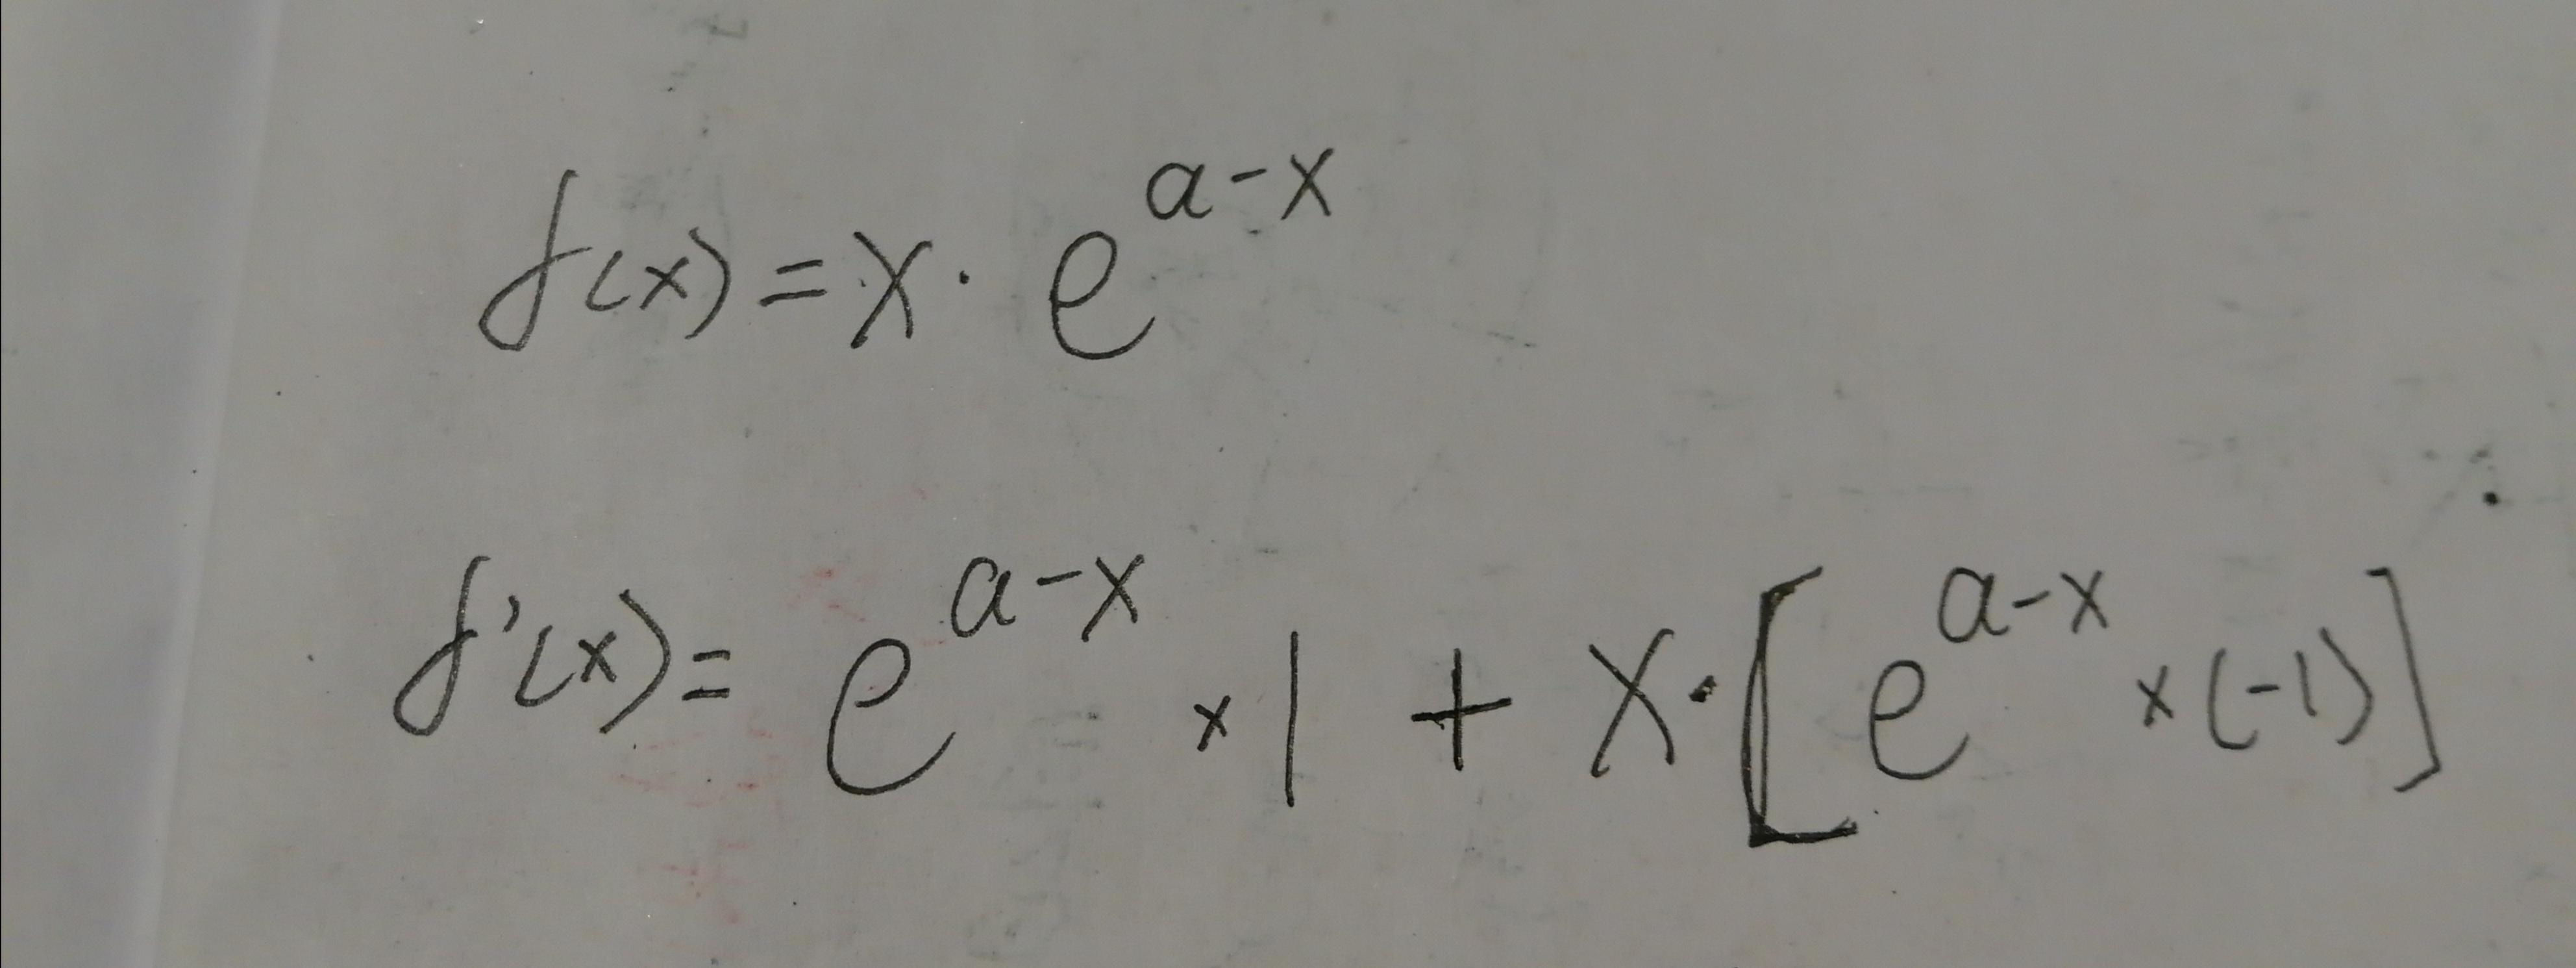 f(x) = x · e^{a-x}
f'(x) = e^{a-x} × 1 + x · [e^{a-x} × (-1)]